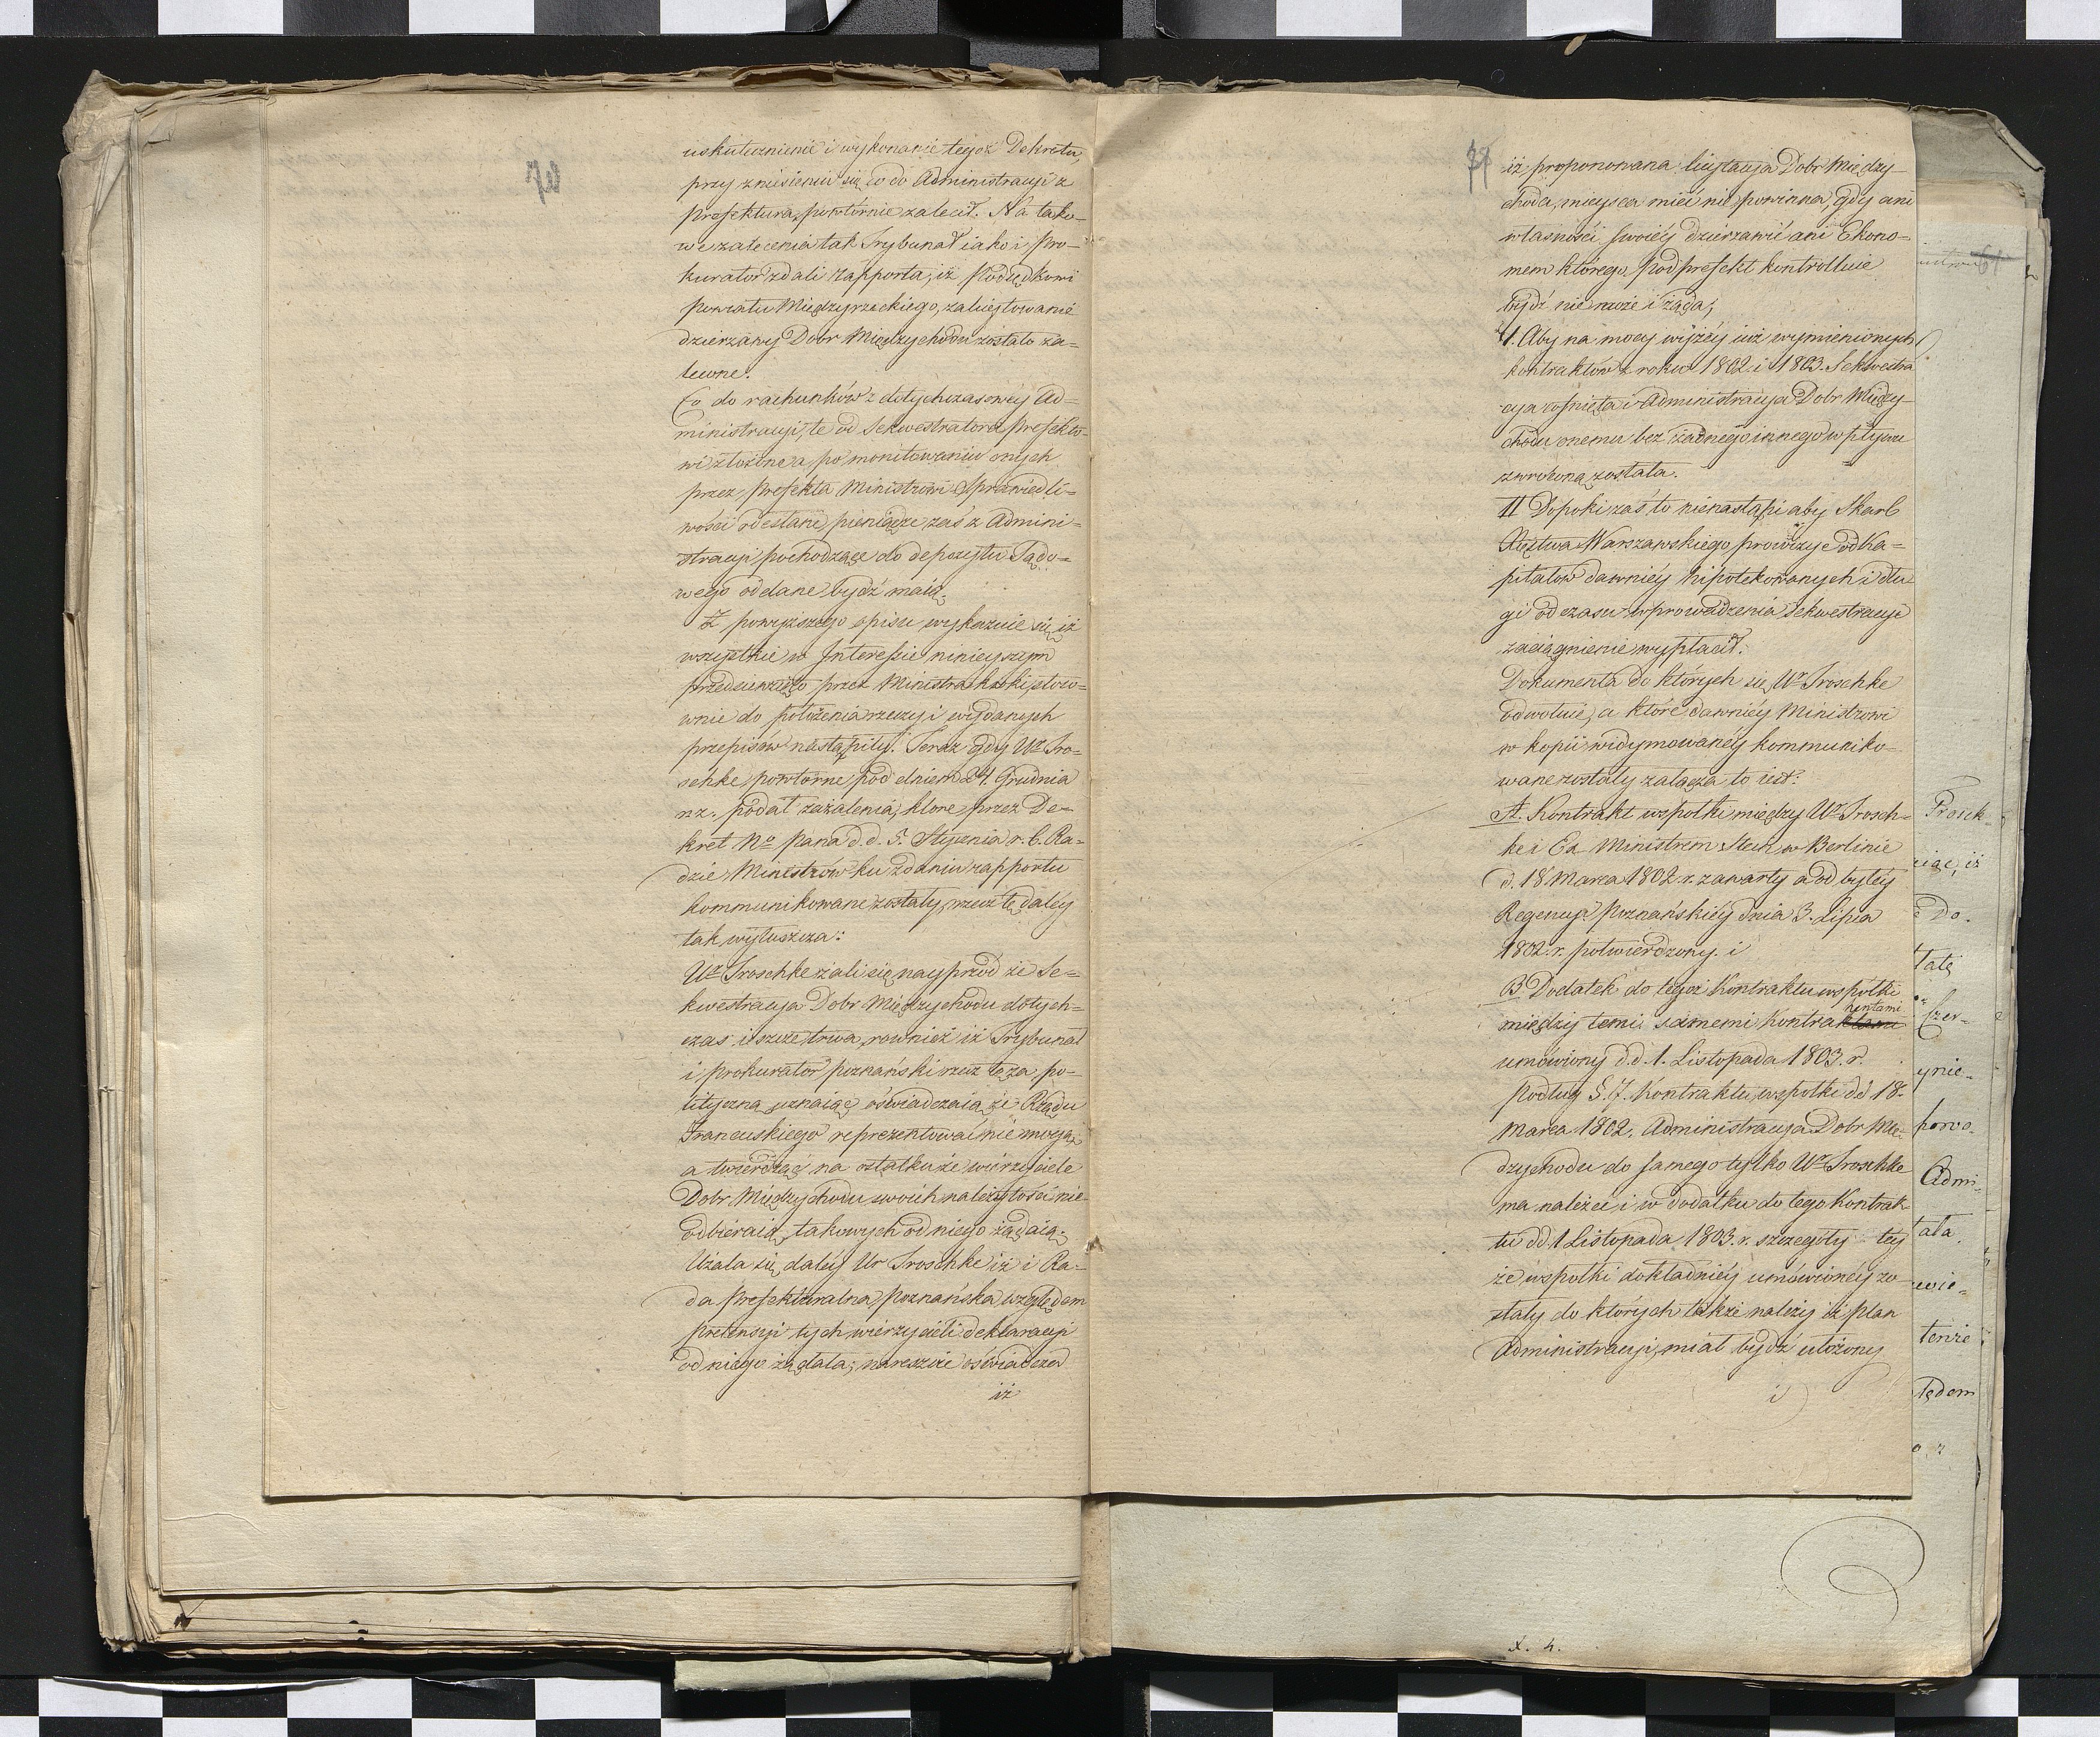 70
uskutecznienie i wykonanie tegoż Dekretu,
przy zniesieniu się co do Administracyi z
prefekturą, powtórnie zalecił. Na tako-
we zalecenia tak Trybunał iako i Pro-
kurator zdali rapporta, iż Podsędkowi
powiatu Międzyrzeckiego, zalicytowanie
dzierzawy Dobr Międzychodu zostało za-
lecone.
Co do rachunków z dotychczasowey Ad-
ministracyi, te od Sekwestratora prefekto-
wi złożone a po monitowaniu onych
przez prefekta Ministrowi Sprawiedli-
wości odesłane, pieniądze zaś z Admini-
stracyi pochodzące do depozytu Sądo-
wego oddane bydź maią.
Z powyższego opisu wykazuie się iż
wszystkie w Interessie ninieyszym
przedsiewzięto przez Ministra kroki stoso-
wnie do położenia rzeczy i wydanych
przepisów nastąpiły. Teraz gdy Ur Tro-
schke powtórne pod dniem 24 Grudnia
nz. podał zażalenia, które przez De-
kret No pana d.d. 5. Stycznia r. b. Ra-
dzie Ministrów ku zdaniu rapportu
kommunikowane zostały, rzecz tę daléy
tak wyłuszcza:
Ur Troschke żali się nayprzód że Se-
kwestracya Dobr Międzychodu dotych-
czas ieszcze trwa, rownież iż Trybunał
i prokurator poznański rzecz tę za po-
lityczną uznaiąc oświadczaią że Rządu
Francuskiego reprezentować nie mogą,
a twierdząc na ostatku że wierzyciele
Dobr Międzychodu swoich należytości nie
odbieraią, takowych od niego żądaią.
Użala się daléy Ur Troschke iż i Ra-
da prefekturalna poznańska względem
pretensyi tych wierzycieli deklaracyi
od niego żądała; nareszcie oświadcza
iż
71
iż proponowana licytacya Dobr Między-
choda, mieysca mieć nie powinna, gdy ani
własności swoiéy dzierzawić ani Ekono-
mem którego Podprefekt kontrolluie
bydź nie może i żąda;
I. Aby na mocy wyżéy iuż wymienionych
kontraktów z roku 1802 i 1803. Sekwestra
cya cofnięta i Administracya Dobr Między-
chodu onemu bez żadnego innego wpływu
zwróconą została.
II Dopoki zaś to nienastąpi aby Skarb
Xięstwa Warszawskiego prowizye od Ka-
pitałow dawniéy hipotekowanych i dłu
gi od czasu wprowadzenia Sekwestracyi
zaciągnienie wypłacił.
Dokumenta do których się Ur Troschke
odwołuie, a które dawniéy Ministrowi
w kopii widymowanéy kommuniko-
wane zostały załącza to iest:
A. Kontrakt wspołki między Ur Trosch-
ke i Ex Ministrem Stein w Berlinie
d. 18. Marca 1802 r. zawarty a od byłéy
Regencyi poznańskiéy dnia 3. Lipca
1802. r. potwierdzony. i
B. Dodatek do tegoż Kontraktu wspołki
między temi samemi Kontrahentami
umówiony d.d. 1. Listopada 1803. r.
Podług §. 7. Kontraktu wspołki dd 18.
Marca 1802. Administracya Dobr Mię-
dzychodu do samego tylko Ur Troschke
ma należeć i w dodatku do tego Kontrak
tu dd. 1 Listopada 1803. r. szczegóły tey
że wspołki dokładniéy umówionéy zo-
stały do których także należy iż plan
Administracyi, miał bydź ułożony
i
61
Trosch-
iąc, iż
Do.
tatę
czer-
ynie-
powo-
Admi-
tała
wie-
tenże
lędem
X. 4.